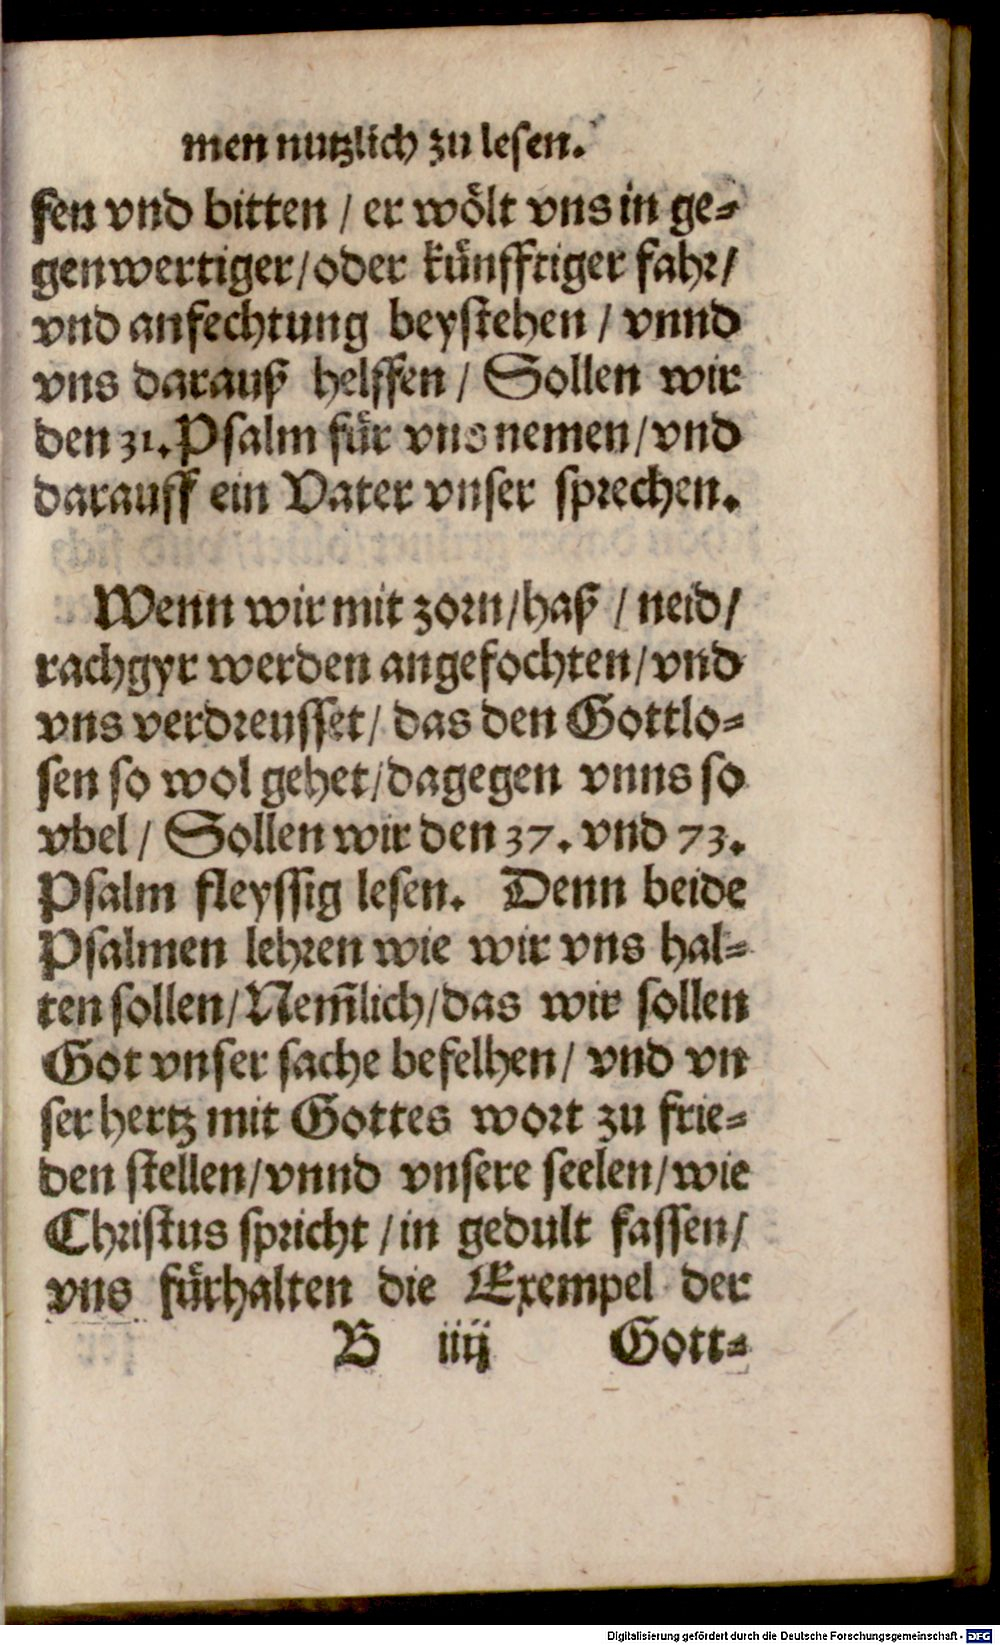 men nutzlich zu lesen.
fen vnd bitten / er wölt vns in ge-
genwertiger/oder künfftiger fahr/
vnd anfechtung beystehen / vnnd
vns darauß helffen / Sollen wir
den 31. Psalm für vns nemen/vnd
darauff ein Vater vnser sprechen.
Wenn wir mit zorn/haß / neid/
rachgyr werden angefochten/vnd
vns verdreusset/ das den Gottlo-
sen so wol gehet/dagegen vnns so
vbel / Sollen wir den 37. vnd 73.
Psalm fleyssig lesen. Denn beide
Psalmen lehren wie wir vns hal-
ten sollen/Nem̃lich/das wir sollen
Got vnser sache befelhen/ vnd vn
ser hertz mit Gottes wort zu frie-
den stellen/vnnd vnsere seelen/wie
Christus spricht /in gedult fassen/
vns fürhalten die Exempel der
B iiij Gott-
Digitalisierung gefördert durch die Deutsche Forschungsgemeinschaft - DFG